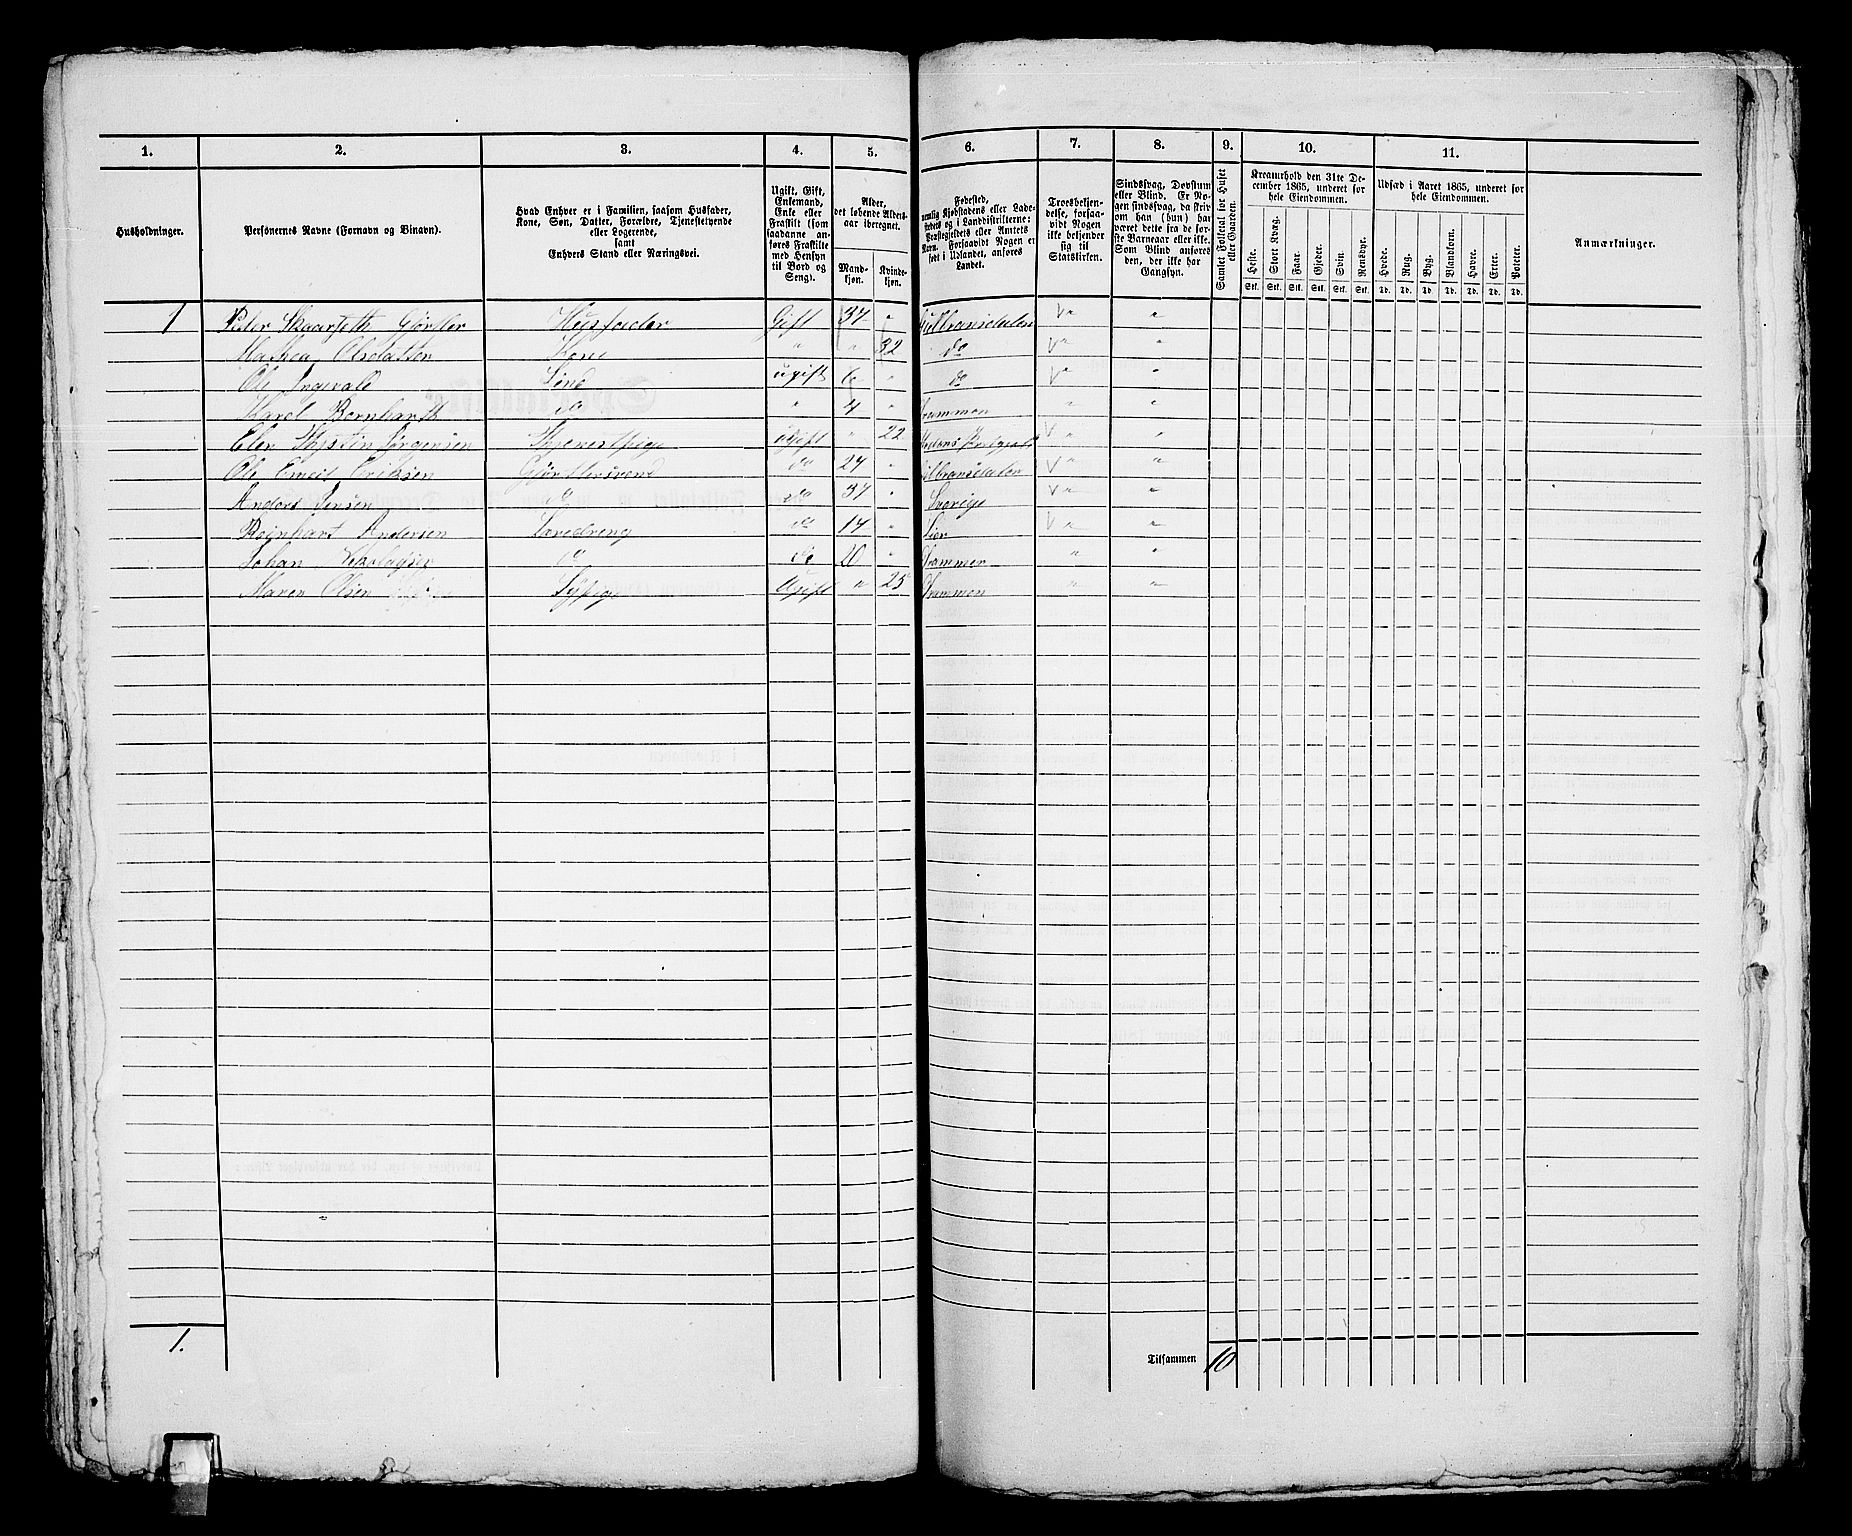 1. 2. 3. 4. 5. 6. 7. 8. 9. 10. 11.
Husholdninger.
Personernes Navne (Fornavn og Binavn).
Hvad Enhver er i Familien, saasom Husfader,
Kone, Søn, Datter, Forældre, Tjenestetyende
eller Logerende,
samt
Enhvers Stand eller Næringsvei.
Ugift, Gift,
Enkemand,
Enke eller
Fraskilt (som
saadanne an-
føres Fraskilte
med Hensyn
til Bord og
Seng).
Alder,
det løbende Alders-
aar iberegnet.
Mand-
kjøn.
Kvinde-
kjøn.
Fødested,
nemlig Kjøbstadens eller Lade-
stedets og i Landdistrikterne:
Præstegjeldets eller Amtets
Navn. Forsaavidt Nogen er
født i Udlandet, anføres
Landet.
Troesbekjen-
delse, forsaa-
vidt Nogen
ikke bekjender
sig til
Statskirken.
Sindssvag, Døvstum
eller Blind. Er No-
gen sindssvag, da skriv
om han (hun) har
været dette fra de før-
ste Barneaar eller ikke.
Som Blind anføres
den, der ikke har
Gangsyn.
Samlet Folketal for Huset
eller Gaarden.
Kreaturhold den 31te De-
cember 1865, underet for
hele Eiendommen.
Heste. Stort Kvæg. Faar. Gjeder. Svin. Rensdyr.
Stk. Stk. Stk. Stk. Stk. Stk.
Udsæd i Aaret 1865, underet for
hele Eiendommen.
Hvede. Rug. Byg. Blandkorn. Havre. Erter. Poteter.
Td. Td. Td. Td. Td. Td. Td.
Anmærkninger.
1 Peter Skaarseth Gjørtler Husfader Gift 37 " Gulbransdalen "
Mathea Olsdatter Kone " " 32 do "
Ole Ingevald Sønd ugift 6 " do "
Karel Bernharth do " 4 " Drammen " "
Elen Thjestin Jørgensen Thjenestpige ugift " 22 " "
Ole Emeil Eriksen Gjørtlersvend do 24 " Gulbransdalen " "
Anders Jensen do do 37 " Sverige " "
Reinhart Andersen Læredreng do 14 " Lier " "
Johan Nikolaysen do do 20 " Drammen " "
Maren Olsen Sypige Ugift " 25 Drammen " "
1.
Tilsammen 10